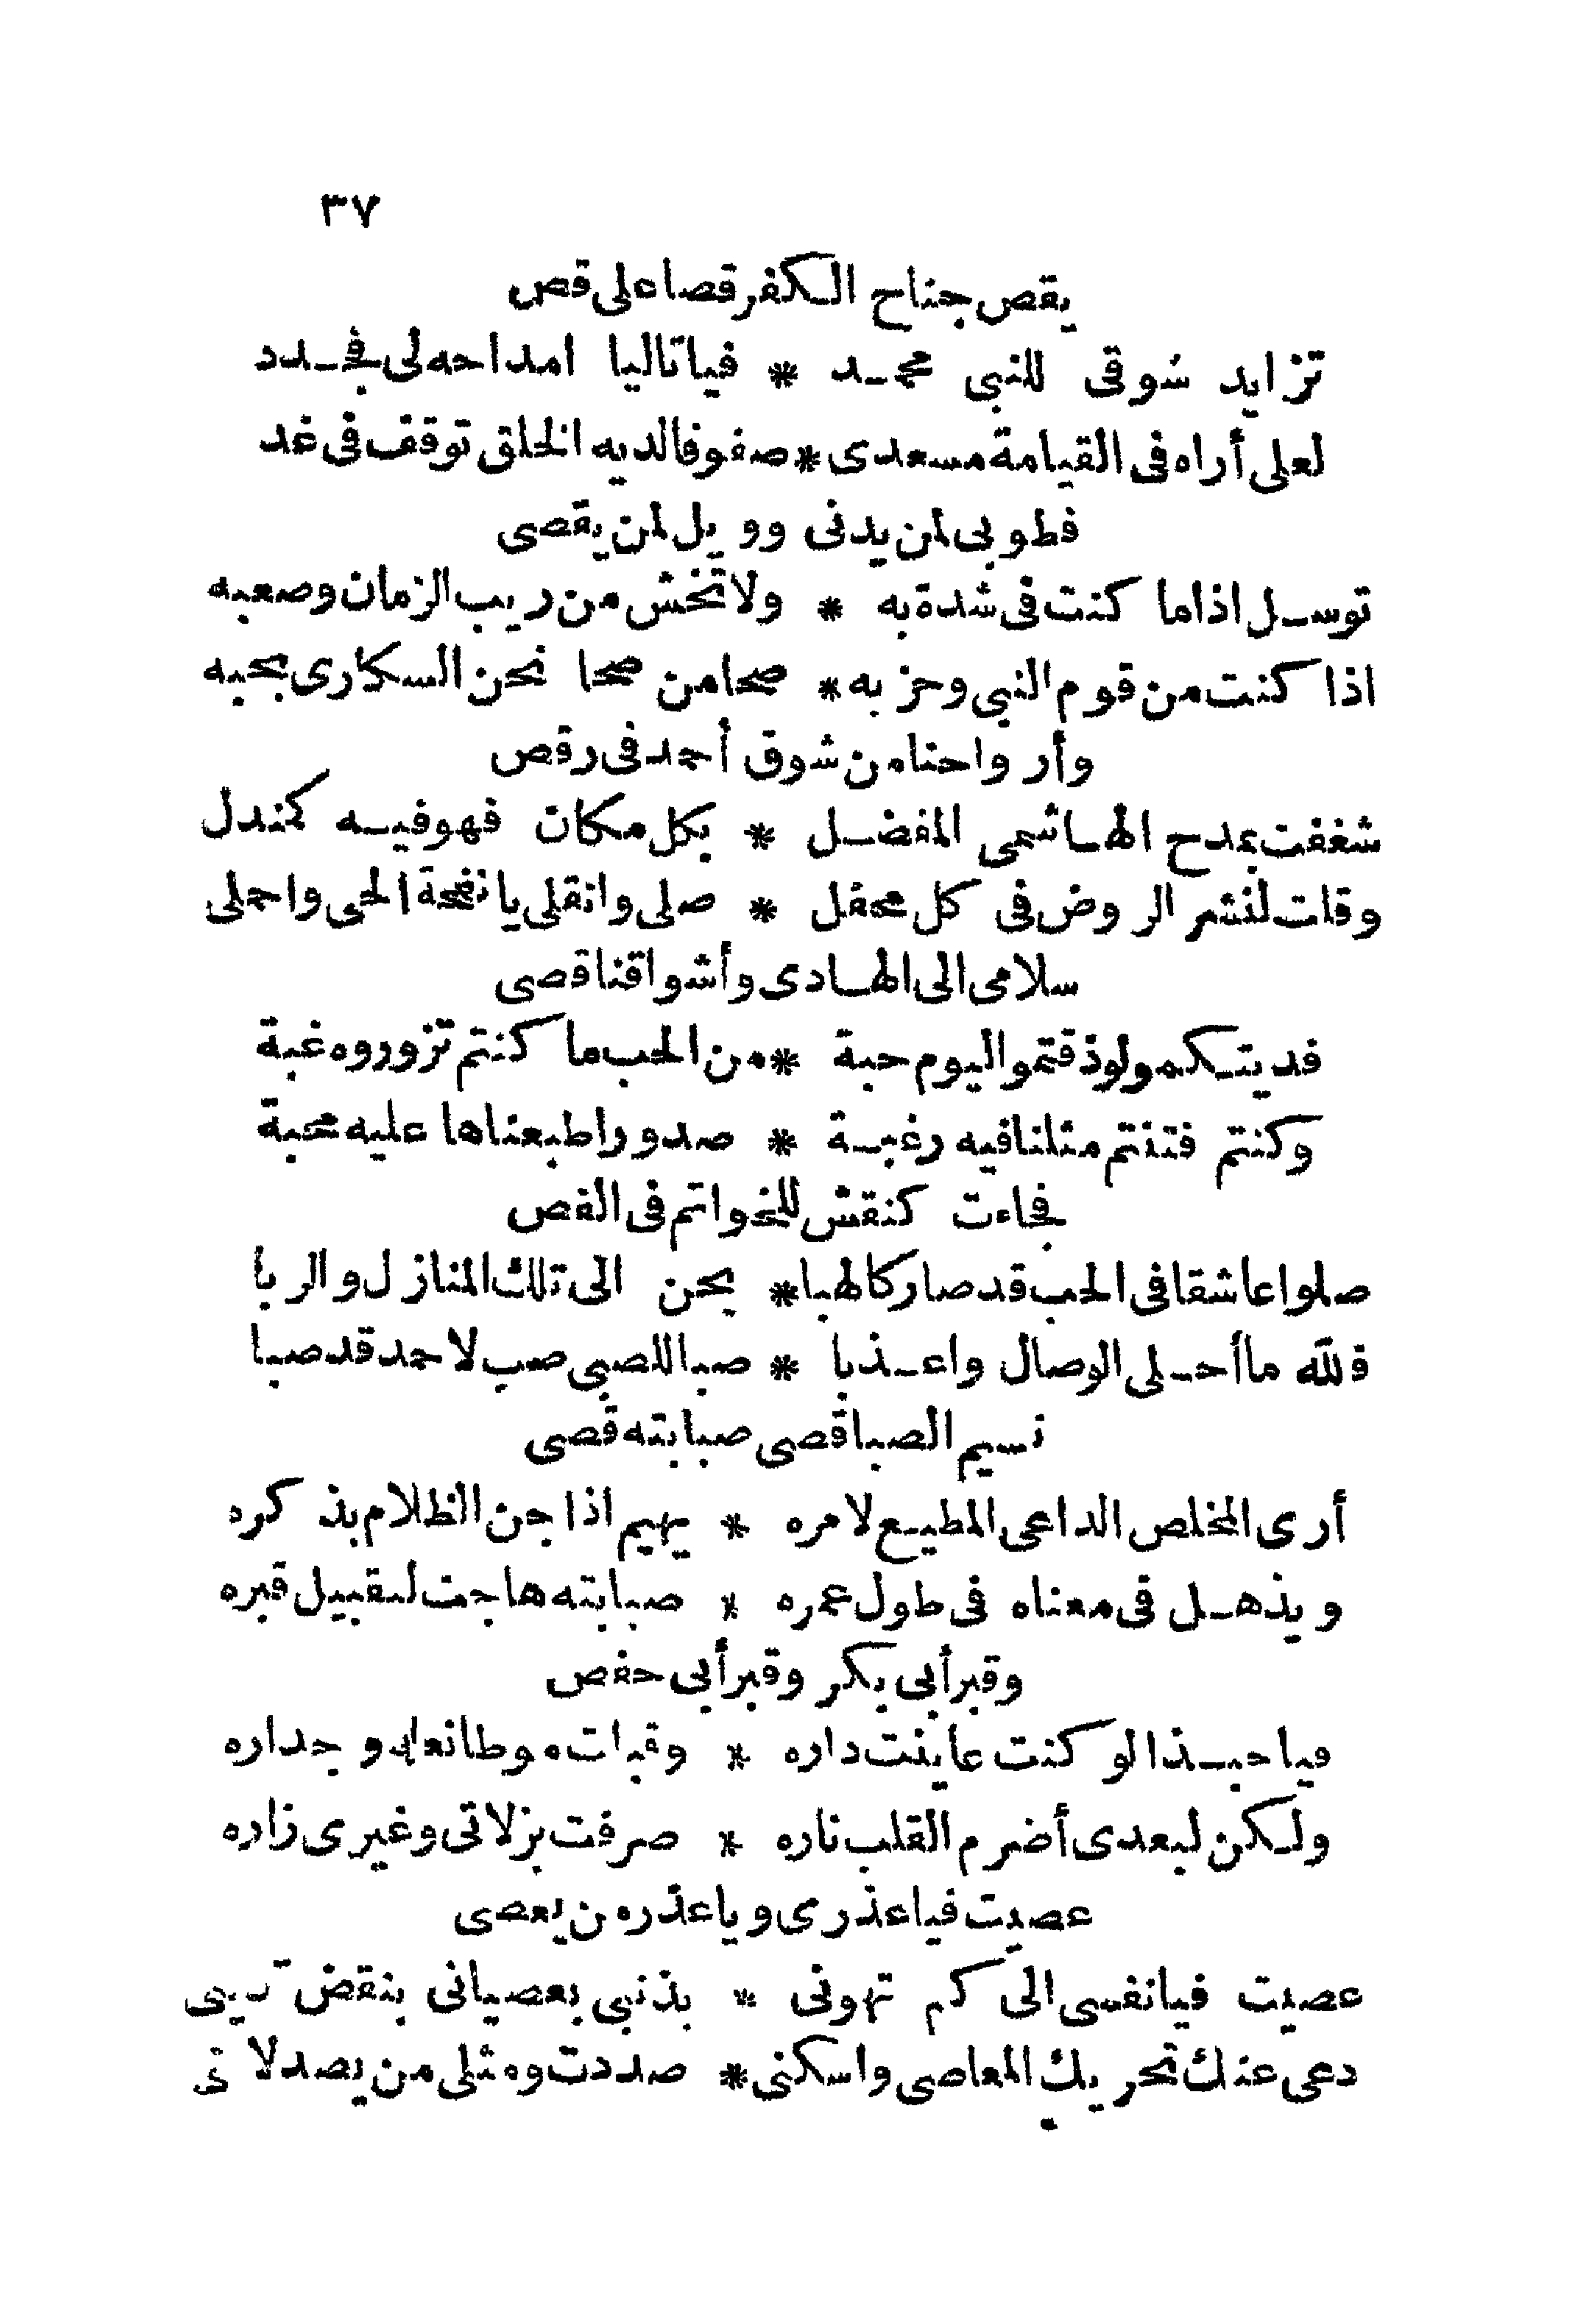 ٣٧
يقص جناح الكفر قصا على قص
تزايد شوقى للنبى محمد * فيا تاليا امداحه لى فجدد
لعلى أراه فى القيامة مسعدى * صفوفا لديه الخلق توقف فى غد
فطوبى لمن يدنى وويل لمن يقصى
توسل اذا ما كنت فى شدة به * ولا تخش من ريب الزمان وصعبه
اذا كنت من قوم النبى وحزبه * صحا من صحا نحن السكارى بحبه
وأرواحنا من شوق أحمد فى رقص
شغفت بمدح الهاشمى المفضل * بكل مكان فهو فيه كمندل
وقلت لنشر الروض فى كل محفل * صلى وانقلى يا نفحة الحى واحملى
سلامى الى الهادى وأشواقنا قصى
فديتكمو لو ذقتمو اليوم حبة * من الحب ما كنتم تزوروه غبة
وكنتم فتنتم مثلنا فيه رغبة * صدورا طبعناها عليه محبة
فجاءت كنقش للخواتم فى الفص
صلوا عاشقا فى الحب قد صار كالهبا * يحن الى تلك المنازل والربا
فلله ما أحلى الوصال واعذبا * صبا للصبى صب لاحمد قد صبا
نسيم الصبا قصى صبابته قصى
أرى المخلص الداعى المطيع لامره * يهيم اذا جن الظلام بذكره
ويذهل فى معناه فى طول عمره * صبابته هاجت لتقبيل قبره
وقبر أبى بكر وقبر أبى حفص
فيا حبذا لو كنت عاينت داره * وقبلت موطا نعله وجداره
ولكن لبعدى أضرم القلب ناره * صرفت بزلاتى وغيرى زاره
عصيت فيا عذرى ويا عذر من يعصى
عصيت فيا نفسى الى كم تهونى * بذنبى بعصيانى بنقض
دعى عنك تحريك المعاصى واسكنى * صددت ومثلى من يصد لا